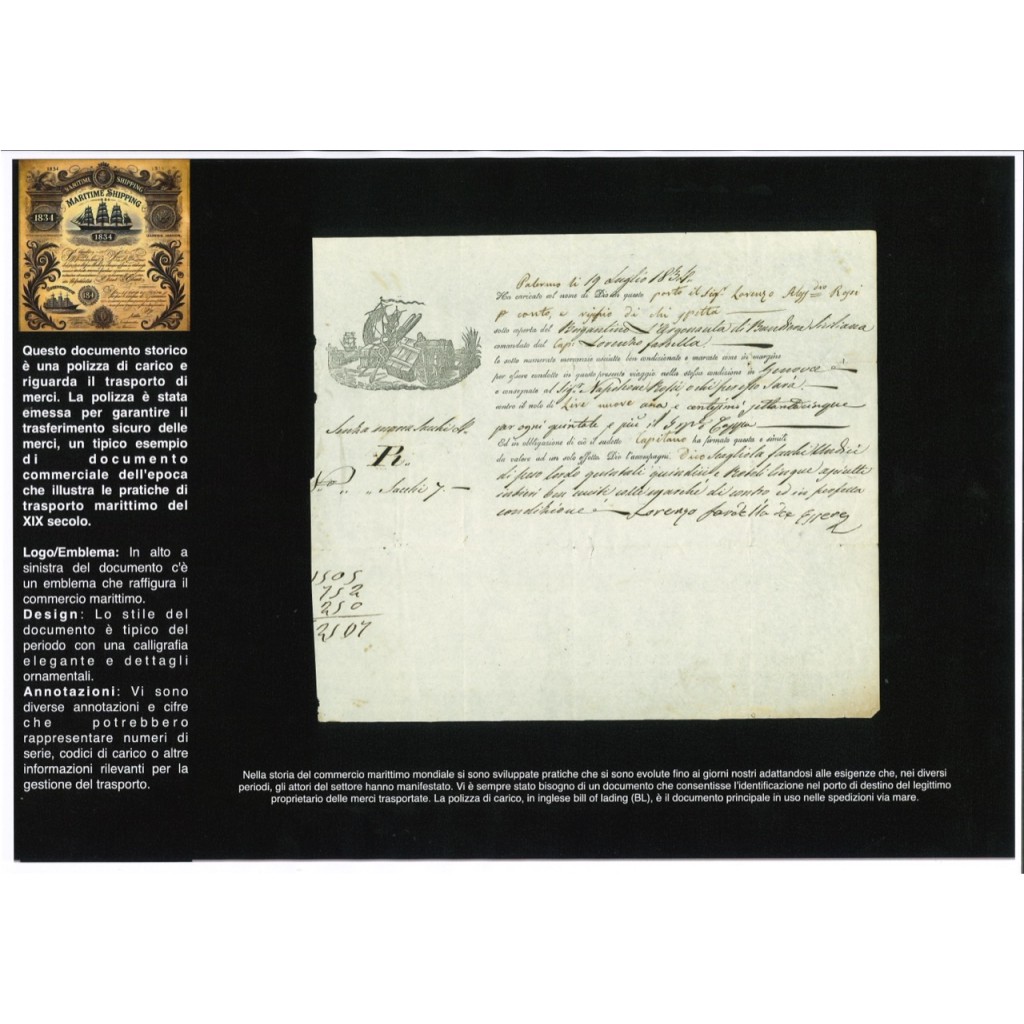 1834
MARITIME SHIPPING
MARITIME SHIPPING
1834
1834
Questo documento storico
è una polizza di carico e
riguarda il trasporto di
merci. La polizza è stata
emessa per garantire il
trasferimento sicuro delle
merci, un tipico esempio
di documento
commerciale dell'epoca
che illustra le pratiche di
trasporto marittimo del
XIX secolo.
Logo/Emblema: In alto a
sinistra del documento c'è
un emblema che raffigura il
commercio marittimo.
Design: Lo stile del
documento è tipico del
periodo con una calligrafia
elegante e dettagli
ornamentali.
Annotazioni: Vi sono
diverse annotazioni e cifre
che potrebbero
rappresentare numeri di
serie, codici di carico o altre
informazioni rilevanti per la
gestione del trasporto.
Palermo li 19 Luglio 1834.
Ha caricato al nome di Dio in questo porto il Sigr. Lorenzo Rossi
conto, e di chi
sotto coperta del Brigantino l'Argonauta di Bandiera Siciliana
comandato dal Cap. Lorenzo
le sotto numerate mercanzie asciutte ben condizionate e marcate come in margine
per essere condotte in questo presente viaggio nella stessa condizione in Genova
e consegnate al Sigr. Napoleone Rossi, o chi per esso sarà
contro il nolo di Lire nuove una, e centesimi settantacinque
per ogni quintale e più il
Ed in obbligazione di ciò il sudetto Capitano ha firmato questa e simile
da valere ad un solo effetto. Dio l'accompagni. Dico
di peso lordo quintali quindici e Rotoli cinque asciutti
di contro ed in perfetta
condizione
Lorenzo
R.
Sacchi 7
1505
752
250
2507
Nella storia del commercio marittimo mondiale si sono sviluppate pratiche che si sono evolute fino ai giorni nostri adattandosi alle esigenze che, nei diversi
periodi, gli attori del settore hanno manifestato. Vi è sempre stato bisogno di un documento che consentisse l'identificazione nel porto di destino del legittimo
proprietario delle merci trasportate. La polizza di carico, in inglese bill of lading (BL), è il documento principale in uso nelle spedizioni via mare.